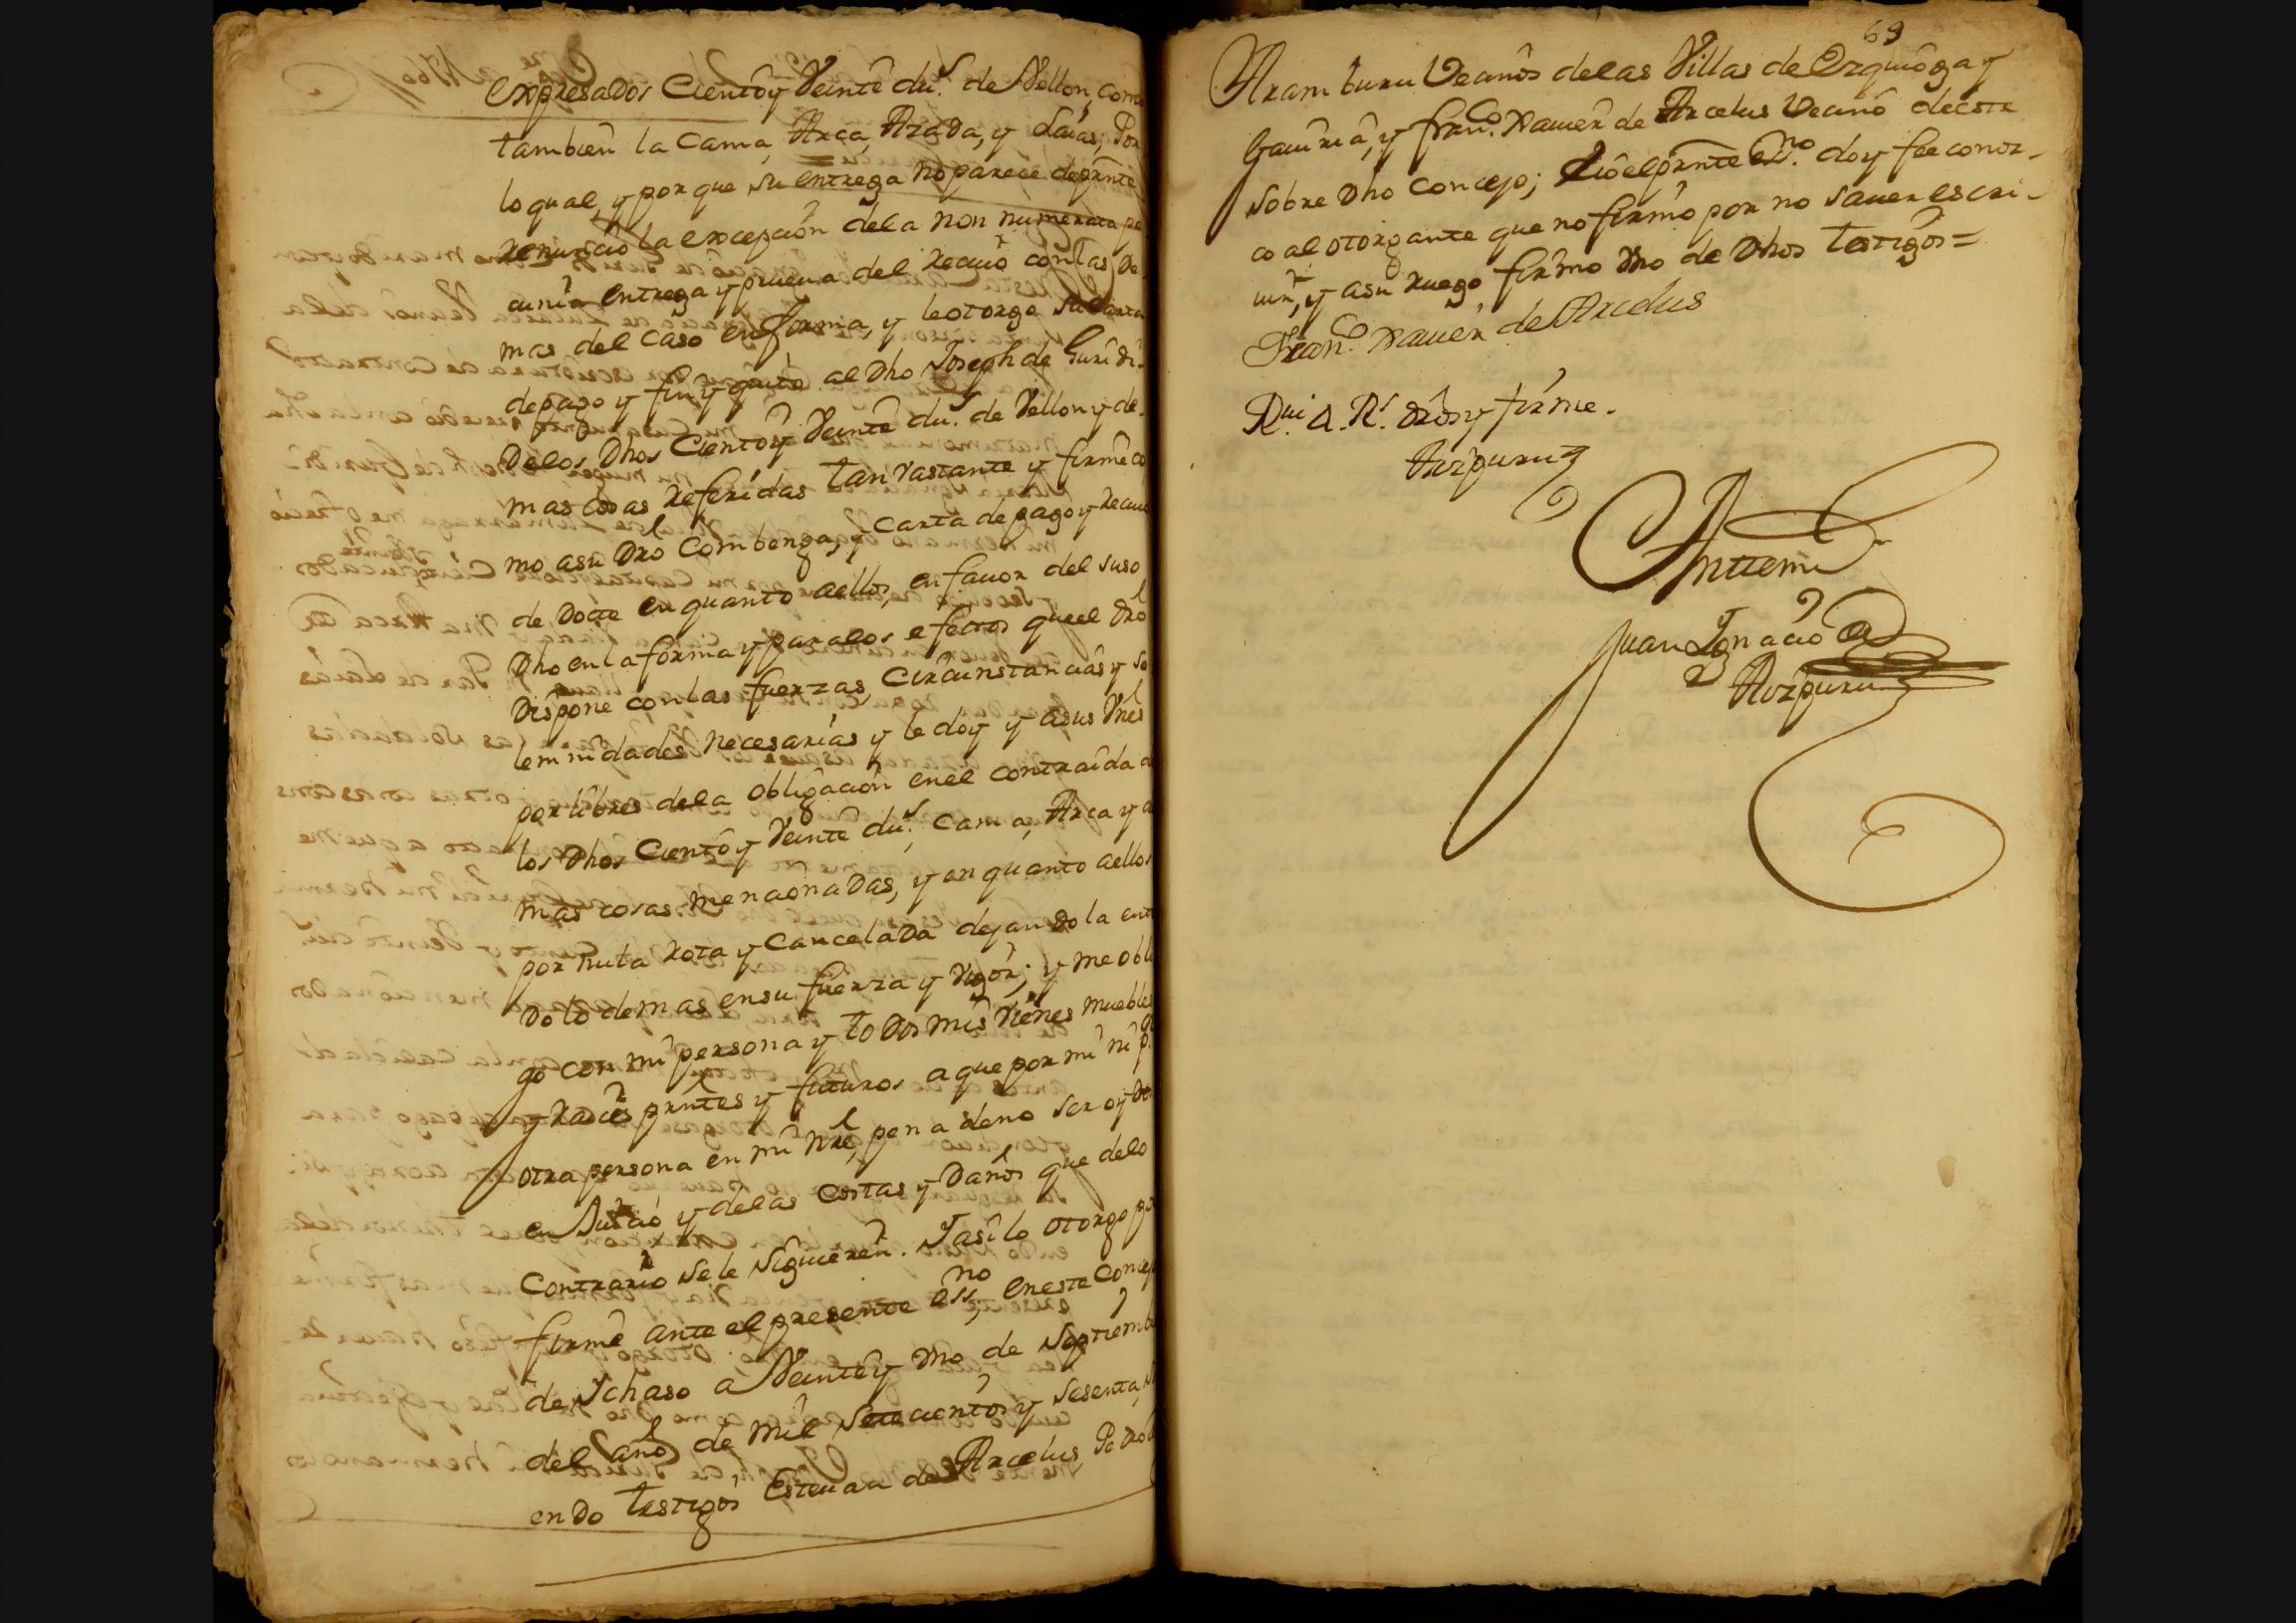 expresados Ciento y Veinte du.s de Vellon, como
tambien la Cama, Arca, Azada, y Laias; Por
lo qual, y por que su entrega no parece de pr̃nte
renuncio la excepcion de la non numerata pe
cunia entrega y prueua del reciuo con las de
mas del caso en forma, y le otorgo su Carta
de pago y fin y quito al Dho Joseph de Guridi
De los Dhos Ciento y Veinte du.s de Vellon y de
mas cosas referidas tan vastante y firme co
mo a su Dro combenga, y carta de pago y reciuo
de Docte en quanto a ellos, en fauor del suso
Dho en la forma y para los efectos que el Dro
Dispone con las fuerzas, Circunstancias y so
lemnidades necesarias y le doy y a sus Vnes
por libres de la obligacion en el contraida a
los Dhos Ciento y Veinte du.s, Cama, Arca y
mas cosas mencionadas, y en quanto a ellos
por nula rota y Cancelada dejando la en
Do lo demas en su fuerza y vigor; y me obli
go con mi persona y todos mis vienes muebles
y raices pr̃ntes y futuros a que por mi ni p.r
otra persona en mi nre, pena de no ser oydo
en Juicio y de las costas y Daños que de lo
Contrario se le siguieren. Y asi lo otorgo por
firme ante el presente ess.no, en este Concejo
de Ichaso a Veinte y Vno de Septiembre
del año de mil Setecientos y sesenta, si
endo testigos Esteuan de Arcelus, Pedro de
69
Aramburu Vecinos de las Villas de Ezquioga y
Gauiria, y Fran.co Xauier de Arcelus Vecino de este
sobre Dho Concejo; E io el pr̃nte ess.no doy fee conoz-
co al otorgante que no firmo por no sauer escri-
uir, y a su ruego firmo Vno de Dhos testigos =
Fran.co Xauier de Arcelus
firme.
Aizpuru
Antemi
Juan Ignacio de
Aizpuru